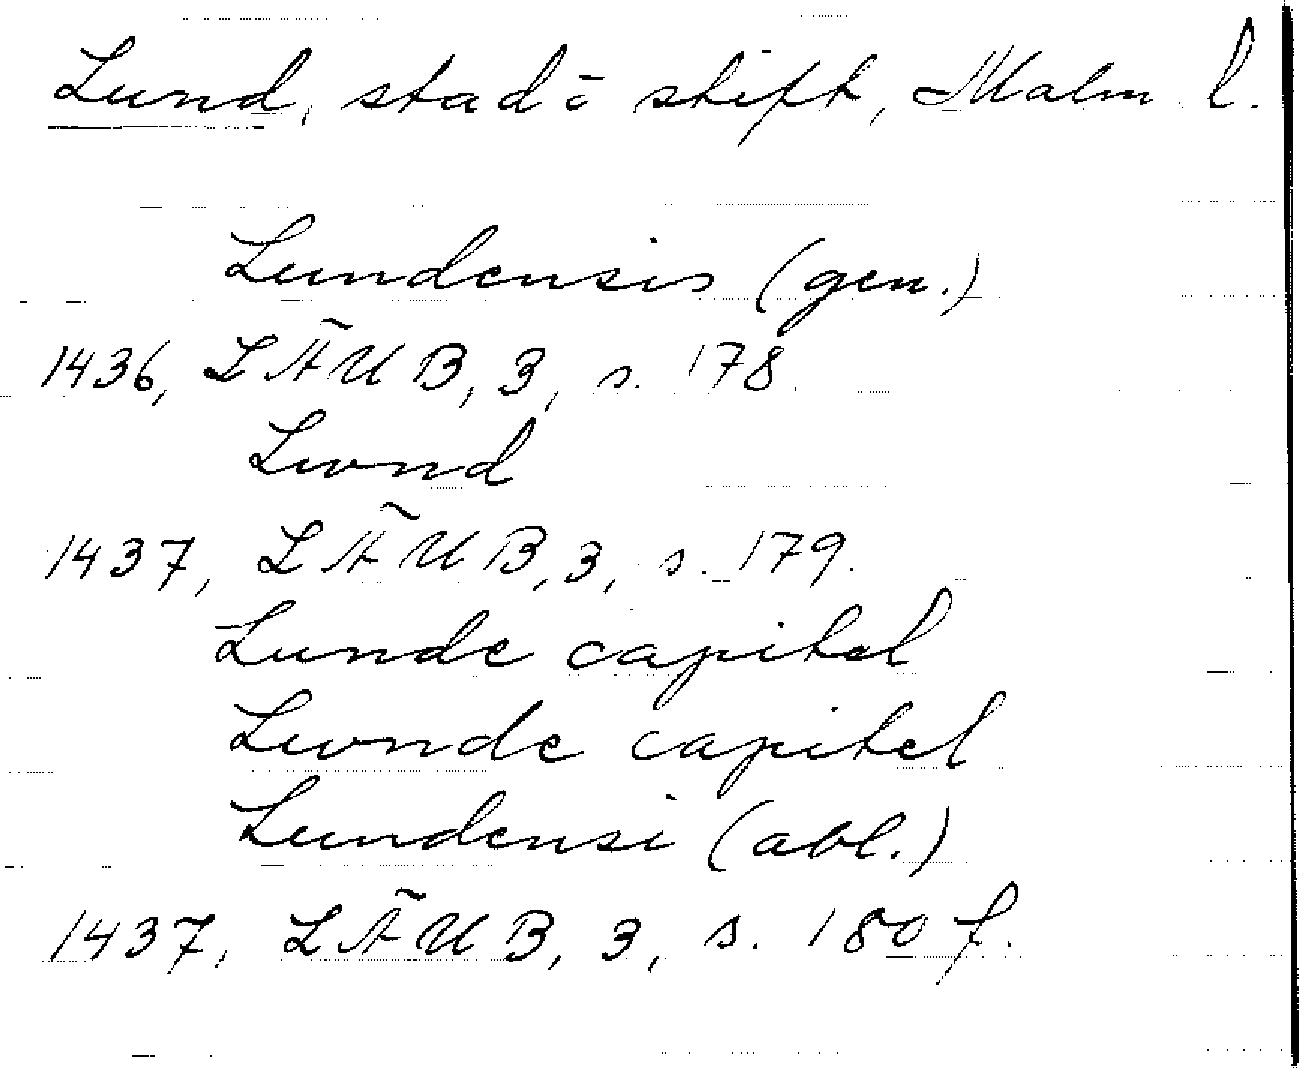 Lund, stad= stift, Malm. l.
Lundensis (gen.)
1436, LÄUB, 3, s. 178.
Lwnd
1437, LÄUB, 3, s. 179.
Lunde capitel
Lwnde capitel
Lundensi (abl.)
1437, LÄUB, 3, s. 180 f.